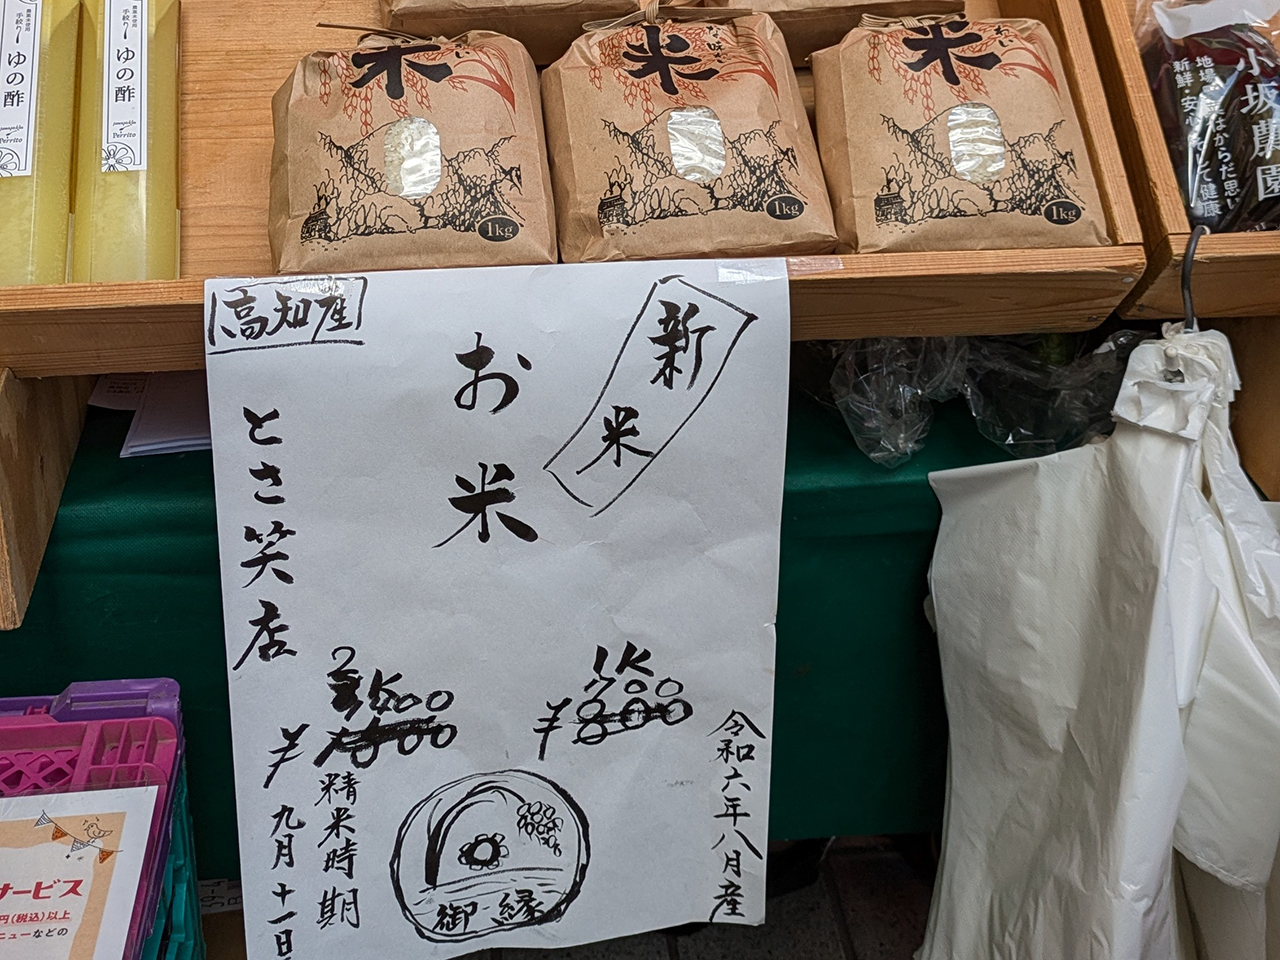 農薬未使用
手絞り
ゆの酢
Perrito
手絞り
ゆの酢
Perrito
米
1kg
米
1kg
米
1kg
小坂農園
地場
はからだ思い
新鮮・安心
て健康
高知産
新米
お米
とさ笑店
1K
700
¥800
2
00
¥
令和六年八月産
精米時期
九月十一日
御縁
サービス
円(税込)以上
ニューなどの